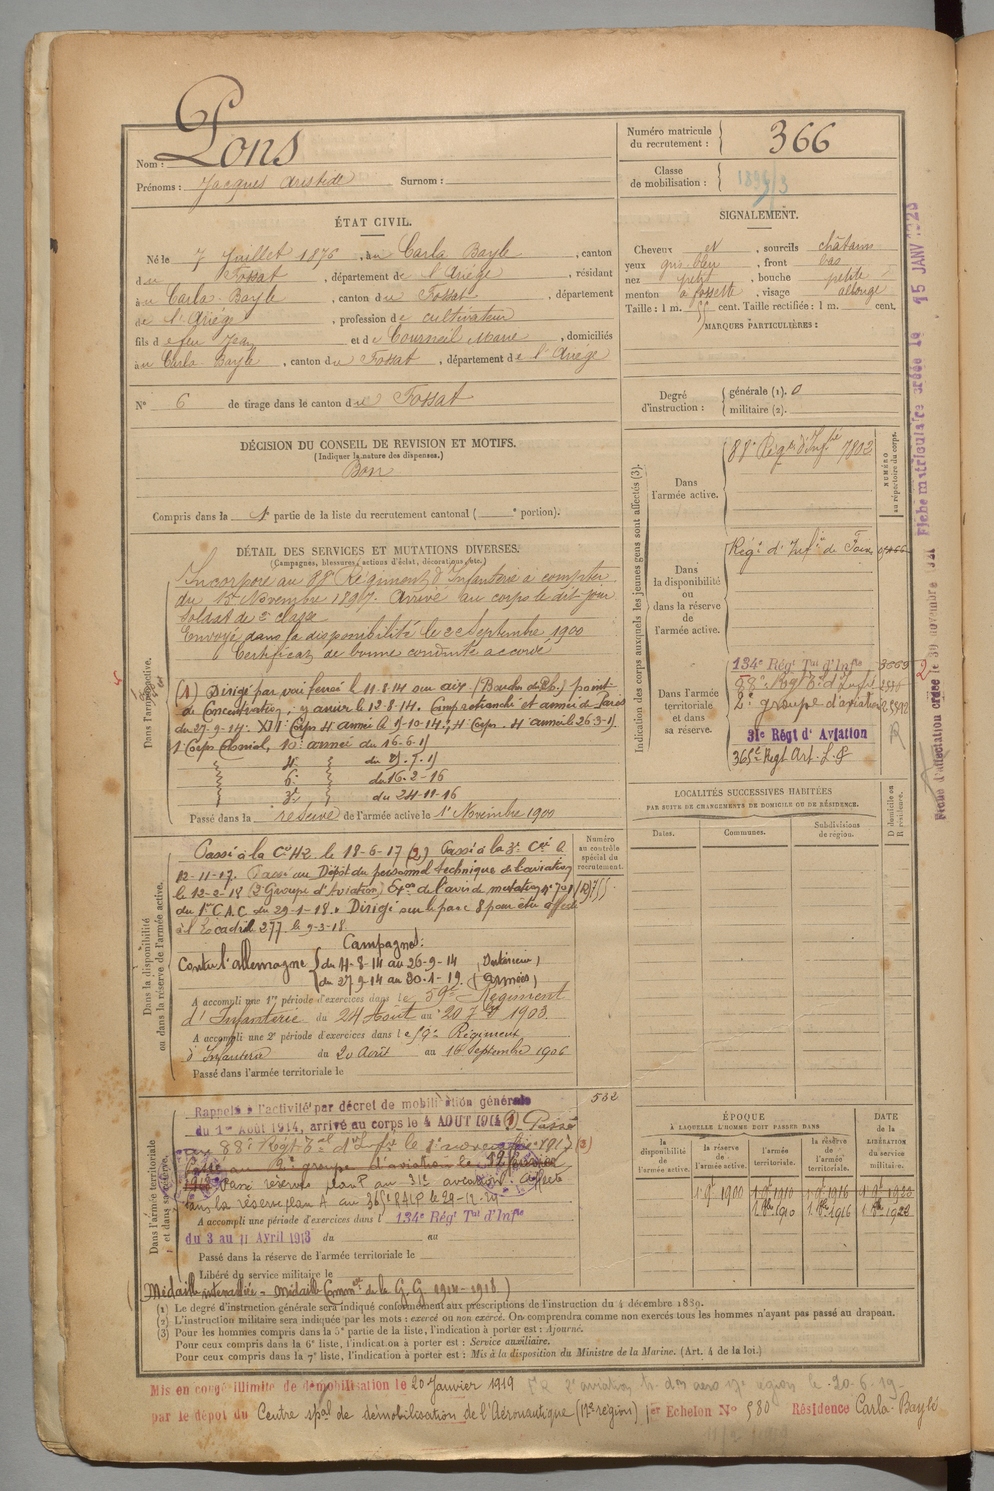 Nom : Pons
Prénoms : Jacques Aristide Surnom :
Numéro matricule du recrutement : 366
Classe de mobilisation :
ÉTAT CIVIL.
Né le 7 Juillet 1876, au Carla Bayle, canton
du Fossat, département de l'Ariège, résidant
au Carla-Bayle, canton du Fossat, département
de l'Ariège, profession de cultivateur
fils de feu Jean et de Courneil Marie, domiciliés
au Carla Bayle, canton du Fossat, département de l'Ariège
N° 6 de tirage dans le canton du Fossat
SIGNALEMENT.
Cheveux et, sourcils châtains
yeux gris bleu, front bas
nez petit, bouche petite
menton à fossette, visage allongé
Taille : 1 m. 55 cent. Taille rectifiée : 1 m. cent.
MARQUES PARTICULIÈRES :
Degré d'instruction : générale (1). 0
militaire (2).
DÉCISION DU CONSEIL DE REVISION ET MOTIFS.
(Indiquer la nature des dispenses.)
Bon
Compris dans la 1 partie de la liste du recrutement cantonal ( ° portion).
DÉTAIL DES SERVICES ET MUTATIONS DIVERSES.
(Campagnes, blessures, actions d'éclat, décorations, etc.)
Dans l'armée active.
Incorporé au 88e Régiment d'Infanterie à compter
du 15 Novembre 1897. Arrivé au corps le dit jour
Soldat de 2e classe
Envoyé dans la disponibilité le 22 Septembre 1900
Certificat de bonne conduite accordé
(1) Dirigé par voie ferrée le 11.8.14 sur Aix (Bouches du Rh.) point
de Concentration, y arrivé le 12-8-14. Camp retranché et armée de Paris
du 27-9-14. XIe Corps 4 armée le 5-10-14; 4 Corps. 4 armée le 26-3-15
1 Corps Colonial, 10e armée du 16-6-15
4e du 25-7-15
6e du 16-2-16
3e du 24-11-16
Passé dans la réserve de l'armée active le 1er Novembre 1900
Dans la disponibilité ou dans la réserve de l'armée active.
Numéro au contrôle spécial du recrutement.
Passé à la Cie H2 le 18-6-17 (2) Passé à la 3e Cie le
12-11-17. Passé au Dépôt du personnel technique de l'aviation
le 12-2-18 (2 Groupe d'Aviation)
du 1er C.A.C. du 29-1-18. Dirigé sur le parc 8 pour être affecté
à l'Escadrille 277 le 9-3-18
Campagnes :
Contre l'Allemagne du 4-8-14 au 26-9-14 (Intérieur)
du 27-9-14 au 20-1-19 (armées)
A accompli une 1re période d'exercices dans le 59e Régiment
d'Infanterie du 24 Août au 20 7bre 1903.
A accompli une 2e période d'exercices dans le 59e Régiment
d'Infanterie du 20 Août au 16 Septembre 1906
Passé dans l'armée territoriale le
552
Dans l'armée territoriale et dans sa réserve.
Rappelé à l'activité par décret de mobilisation générale
du 1er Août 1914, arrivé au corps le 4 AOUT 1914 (1) Passé
au 88e Régt Tal d'Infie le 1er novembre 1917 (3)
Passé au 2e groupe d'aviation le 12 février
1918 Passé réserve plan P au 31e aviation. Affecté
dans la réserve plan A au 365e RALP le 29-12-29
A accompli une période d'exercices dans l 134e Régt Tal d'Infie
du 3 au 11 Avril 1913 du au
Passé dans la réserve de l'armée territoriale le
Libéré du service militaire le
Médaille interalliée - Médaille Commve de la G. G. 1914-1918)
Indication des corps auxquels les jeunes gens sont affectés (3).
NUMÉRO au répertoire du corps.
Dans l'armée active.
88e Régt d'Infie 7802
Dans la disponibilité ou dans la réserve de l'armée active.
Régt d'Infie de Foix
Dans l'armée territoriale et dans sa réserve.
134e Régt Tal d'Infie
88e Régt Tal d'Infie
2e groupe d'aviation
31e Régt d'Aviation
365e Régt Art. L.P
LOCALITÉS SUCCESSIVES HABITÉES
PAR SUITE DE CHANGEMENTS DE DOMICILE OU DE RÉSIDENCE.
D domicile ou R résidence.
Dates. Communes. Subdivisions de région.
ÉPOQUE
À LAQUELLE L'HOMME DOIT PASSER DANS
DATE de la LIBÉRATION du service militaire.
la disponibilité de l'armée active. la réserve de l'armée active. l'armée territoriale. la réserve de l'armée territoriale.
1 9bre 1900 1 9bre 1910 1 9bre 1916 1 9bre 1922
1 8bre 1910 1 8bre 1916 1 8bre 1922
(1) Le degré d'instruction générale sera indiqué conformément aux prescriptions de l'instruction du 4 décembre 1889.
(2) L'instruction militaire sera indiquée par les mots : exercé ou non exercé. On comprendra comme non exercés tous les hommes n'ayant pas passé au drapeau.
(3) Pour les hommes compris dans la 5e partie de la liste, l'indication à porter est : Ajourné.
Pour ceux compris dans la 6e liste, l'indication à porter est : Service auxiliaire.
Pour ceux compris dans la 7e liste, l'indication à porter est : Mis à la disposition du Ministre de la Marine. (Art. 4 de la loi.)
Mis en congé illimité de démobilisation le 20 Janvier 1919
par le dépôt du Centre spal de démobilisation de l'Aéronautique (17e région) 1er Echelon N° 580 Résidence Carla-Bayle
Fiche matriculaire créée le 15 JANV 1928
Fiche d'affectation créée le 30 novembre